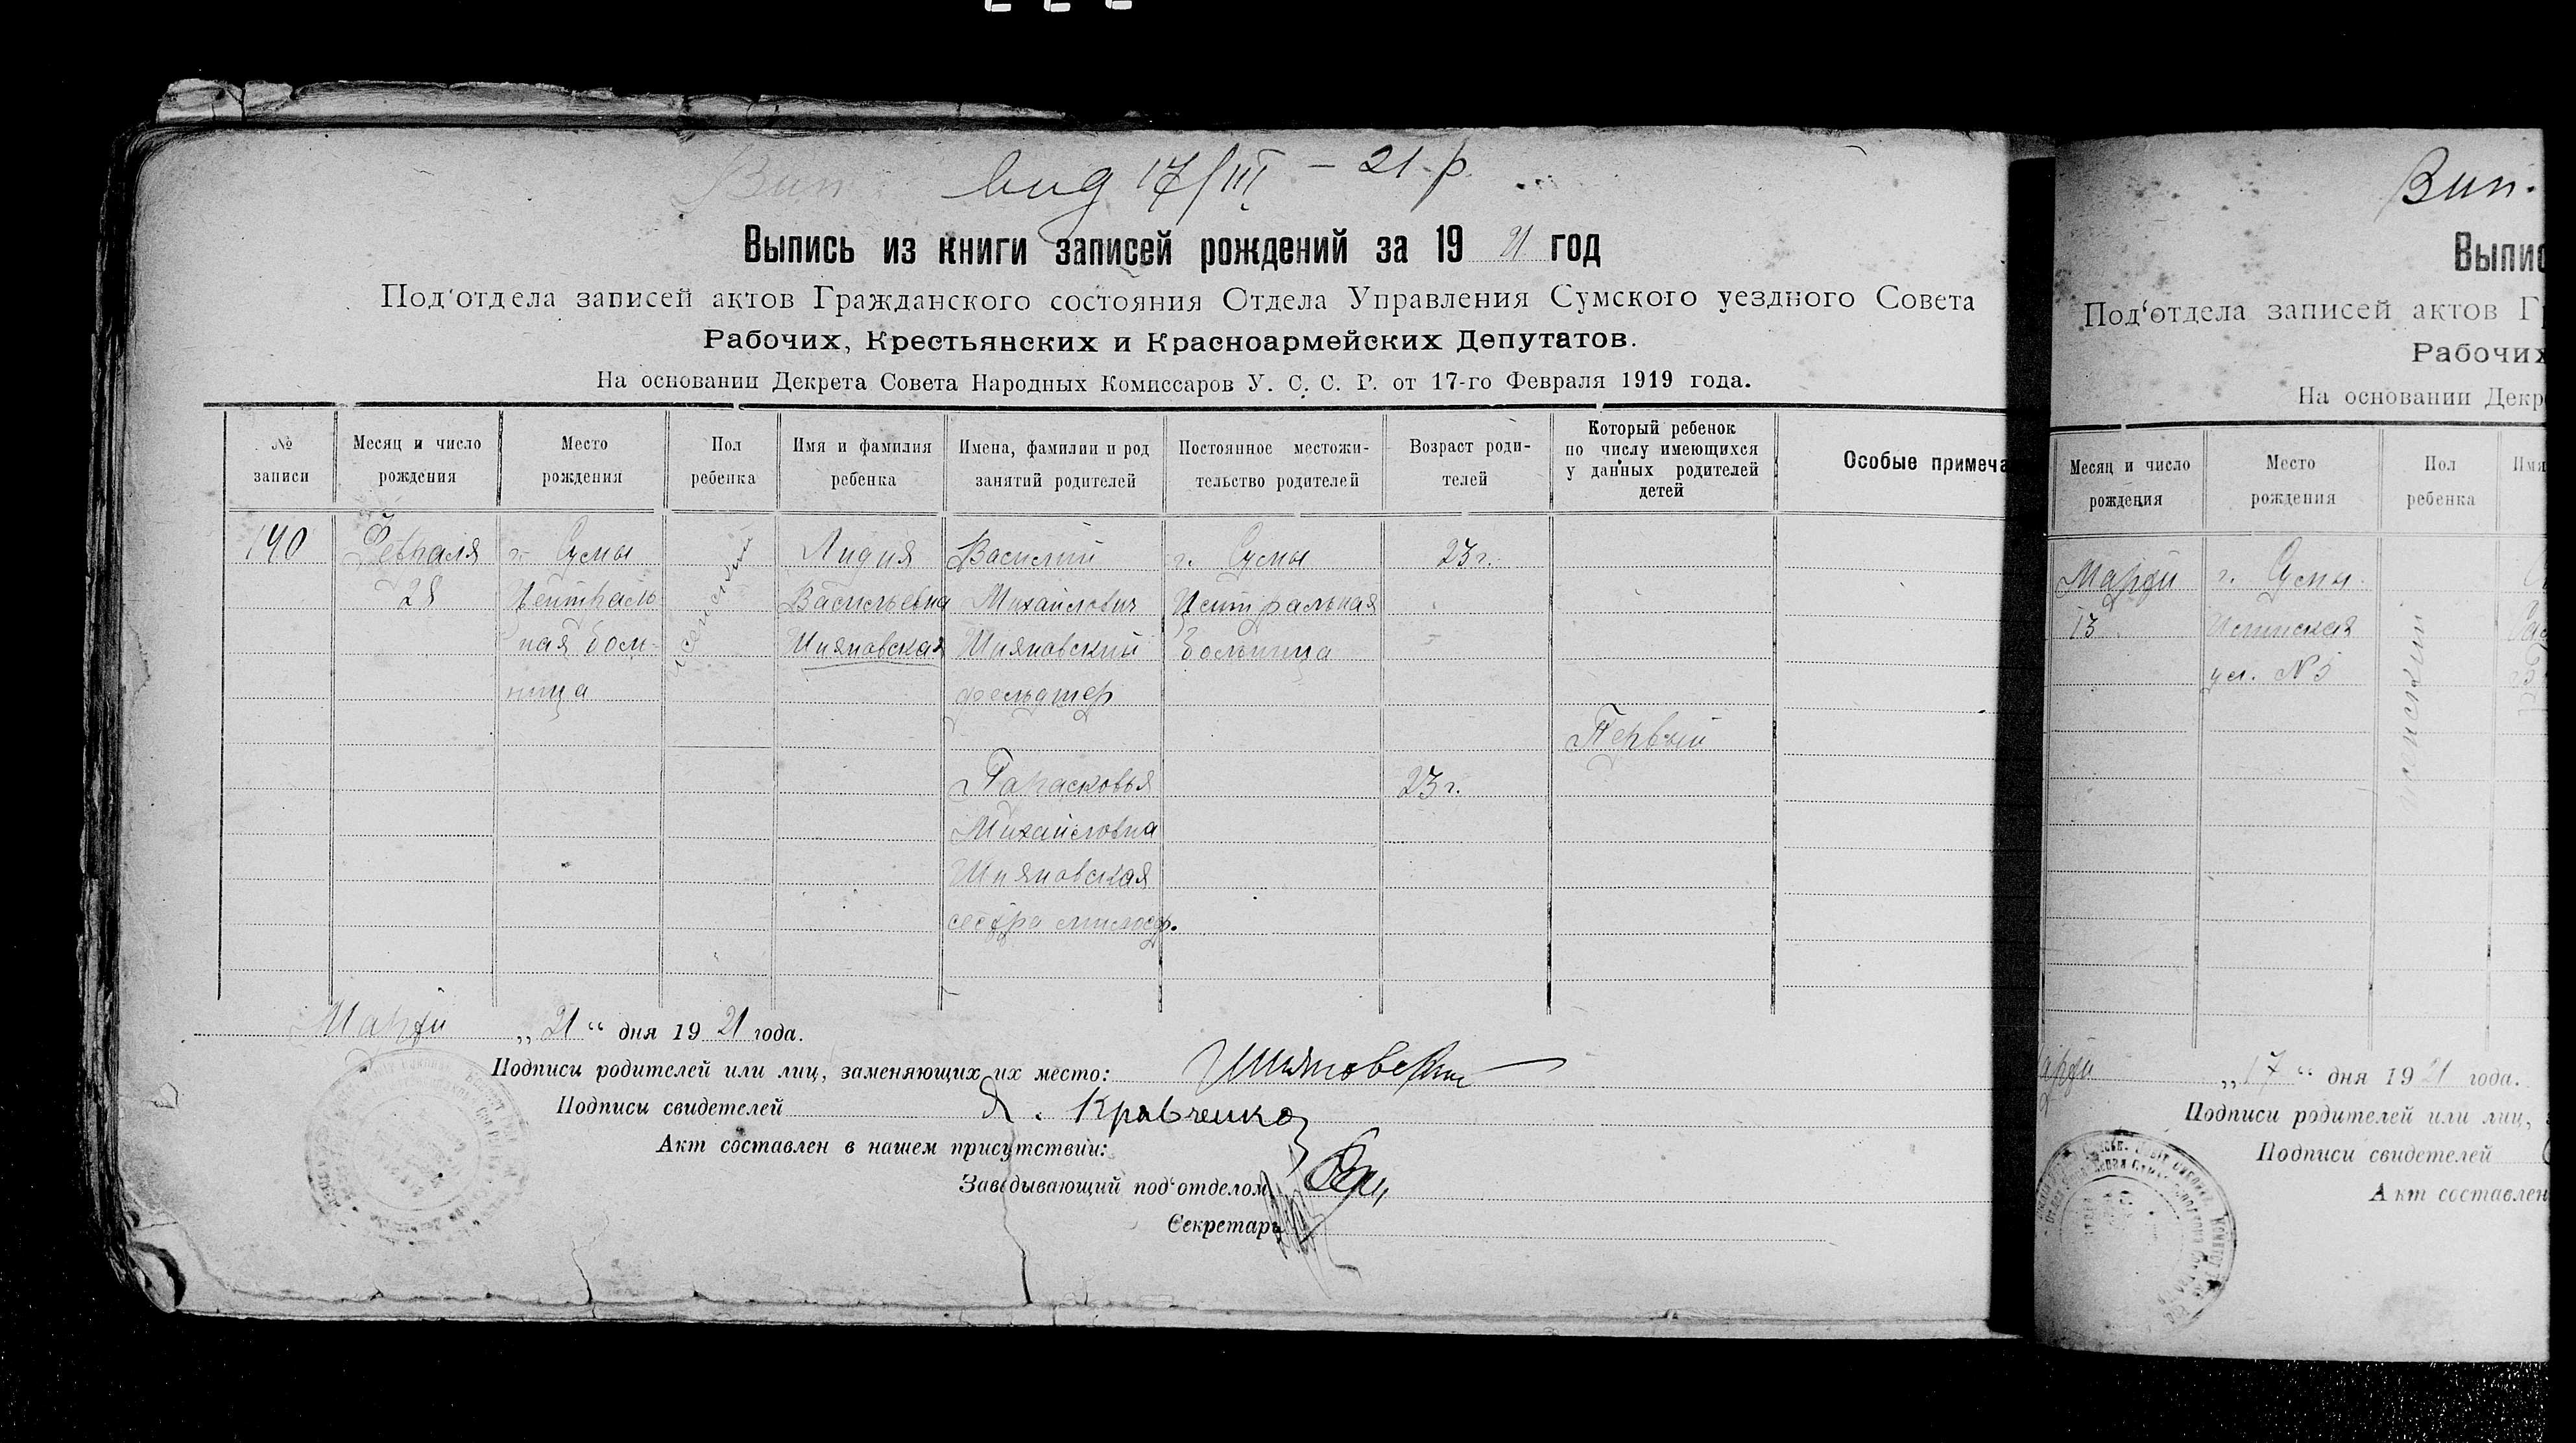 вид 17/III – 21 р.
Выпись из книги записей рождений за 19 21 год
Под'отдела записей актов Гражданского состояния Отдела Управления Сумского уездного Совета
Рабочих, Крестьянских и Красноармейских Депутатов.
На основании Декрета Совета Народных Комиссаров У. С. С. Р. от 17-го Февраля 1919 года.
№ записи
Месяц и число рождения
Место рождения
Пол ребенка
Имя и фамилия ребенка
Имена, фамилии и род занятий родителей
Постоянное местожительство родителей
Возраст родителей
Который ребенок по числу имеющихся у данных родителей детей
Особые примеча
140
Февраля
28
г. Сумы
Централь
ная боль-
ница
женский
Лидия
Васильевна
Шияновская
Василий
Михайлович
Шияновский
фельдшер
Парасковья
Михайловна
Шияновская
сестра милосер.
г. Сумы
Центральная
больница
23 г.
23 г.
Первый
Марта „ 21 “ дня 19 21 года.
Подписи родителей или лиц, заменяющих их место: Шияновский
Подписи свидетелей Я. Кравченко
Акт составлен в нашем присутствии:
Заведывающий под'отделом
Секретарь
Вип.
Выпис
Под'отдела записей актов Г
Рабочих
На основании Декр
Месяц и число рождения
Место рождения
Пол ребенка
Имя
Марта
13
г. Сумы
ул. № 5
женский
арта „ 17 “ дня 19 21 года.
Подписи родителей или лиц,
Подписи свидетелей
Акт составлен